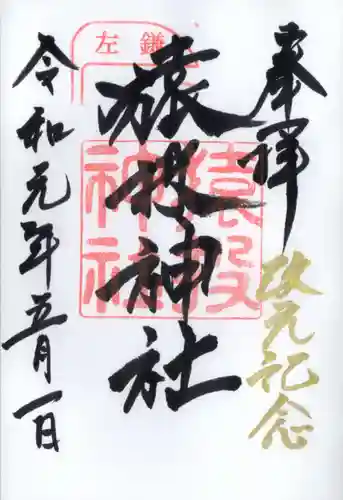 奉拝
改元記念
左鎌
猿投神社
猿投神社
令和元年五月一日